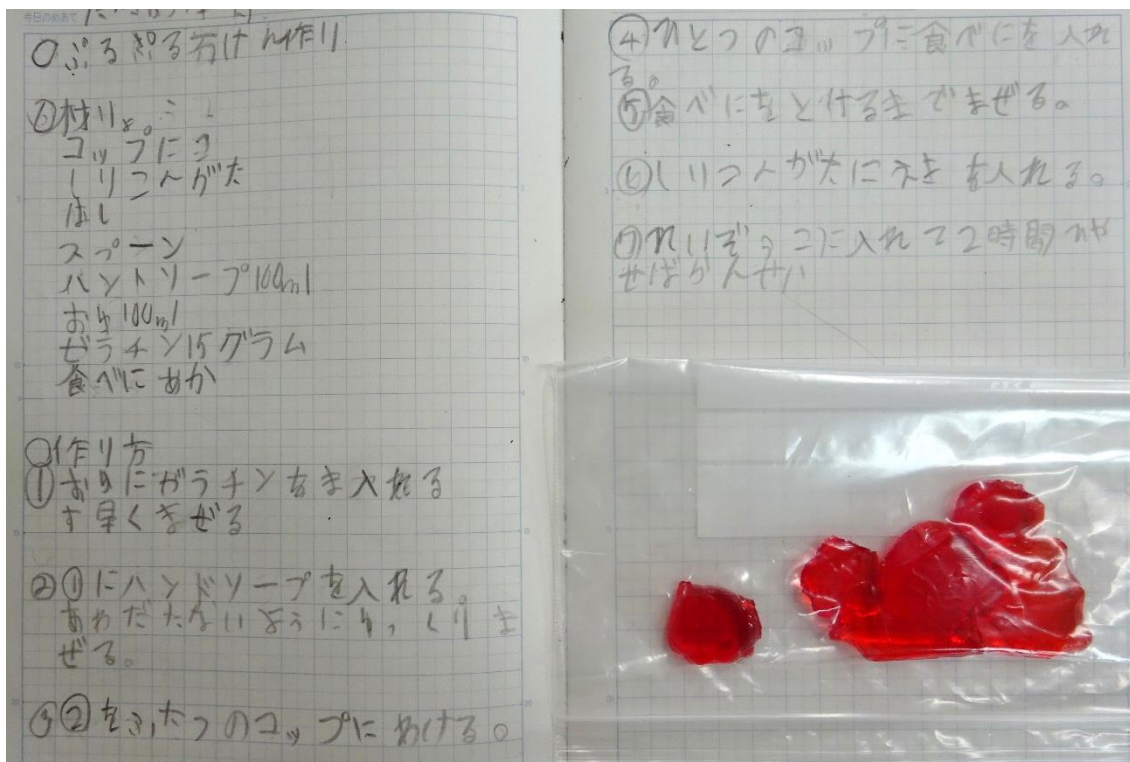 今日のめあて
○ぷるぷる石けん作り
○材りょ。
コップ二コ
しりこんがた
はし
スプーン
ハンドソープ100ml
おゆ100ml
ゼラチン15グラム
食べにあか
○作り方
①おゆにガラチンをま入れる
す早くまぜる
②①にハンドソープを入れる。
あわだたないようにゆっくりま
ぜる。
③②をふたつのコップにわける。
④ひとつのコップに食べにを入れ
る。
⑤食べにをとけるまでまぜる。
⑥しリコンがたにえきを入れる。
⑦れいぞうこに入れて2時間ひや
せばかんせい